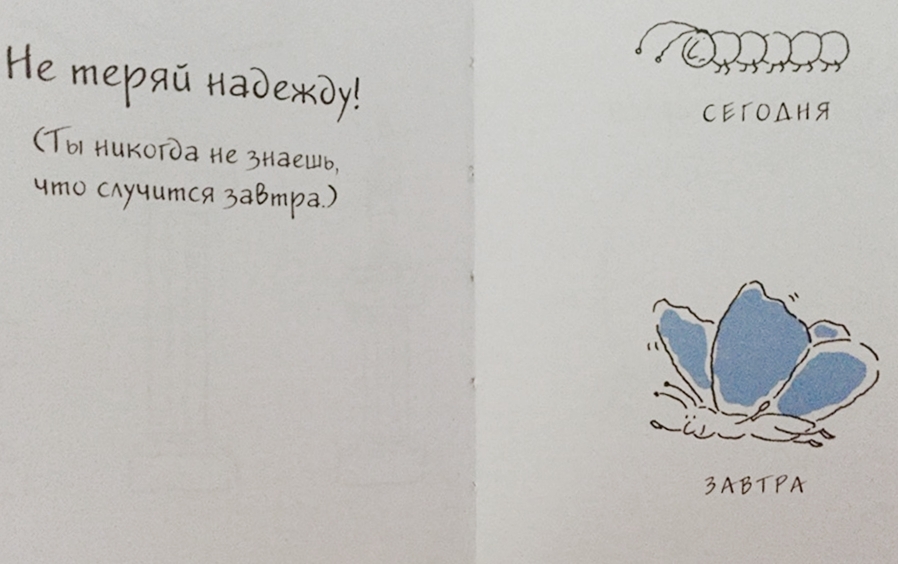 Не теряй надежду!
(Ты никогда не знаешь,
что случится завтра.)
СЕГОДНЯ
ЗАВТРА